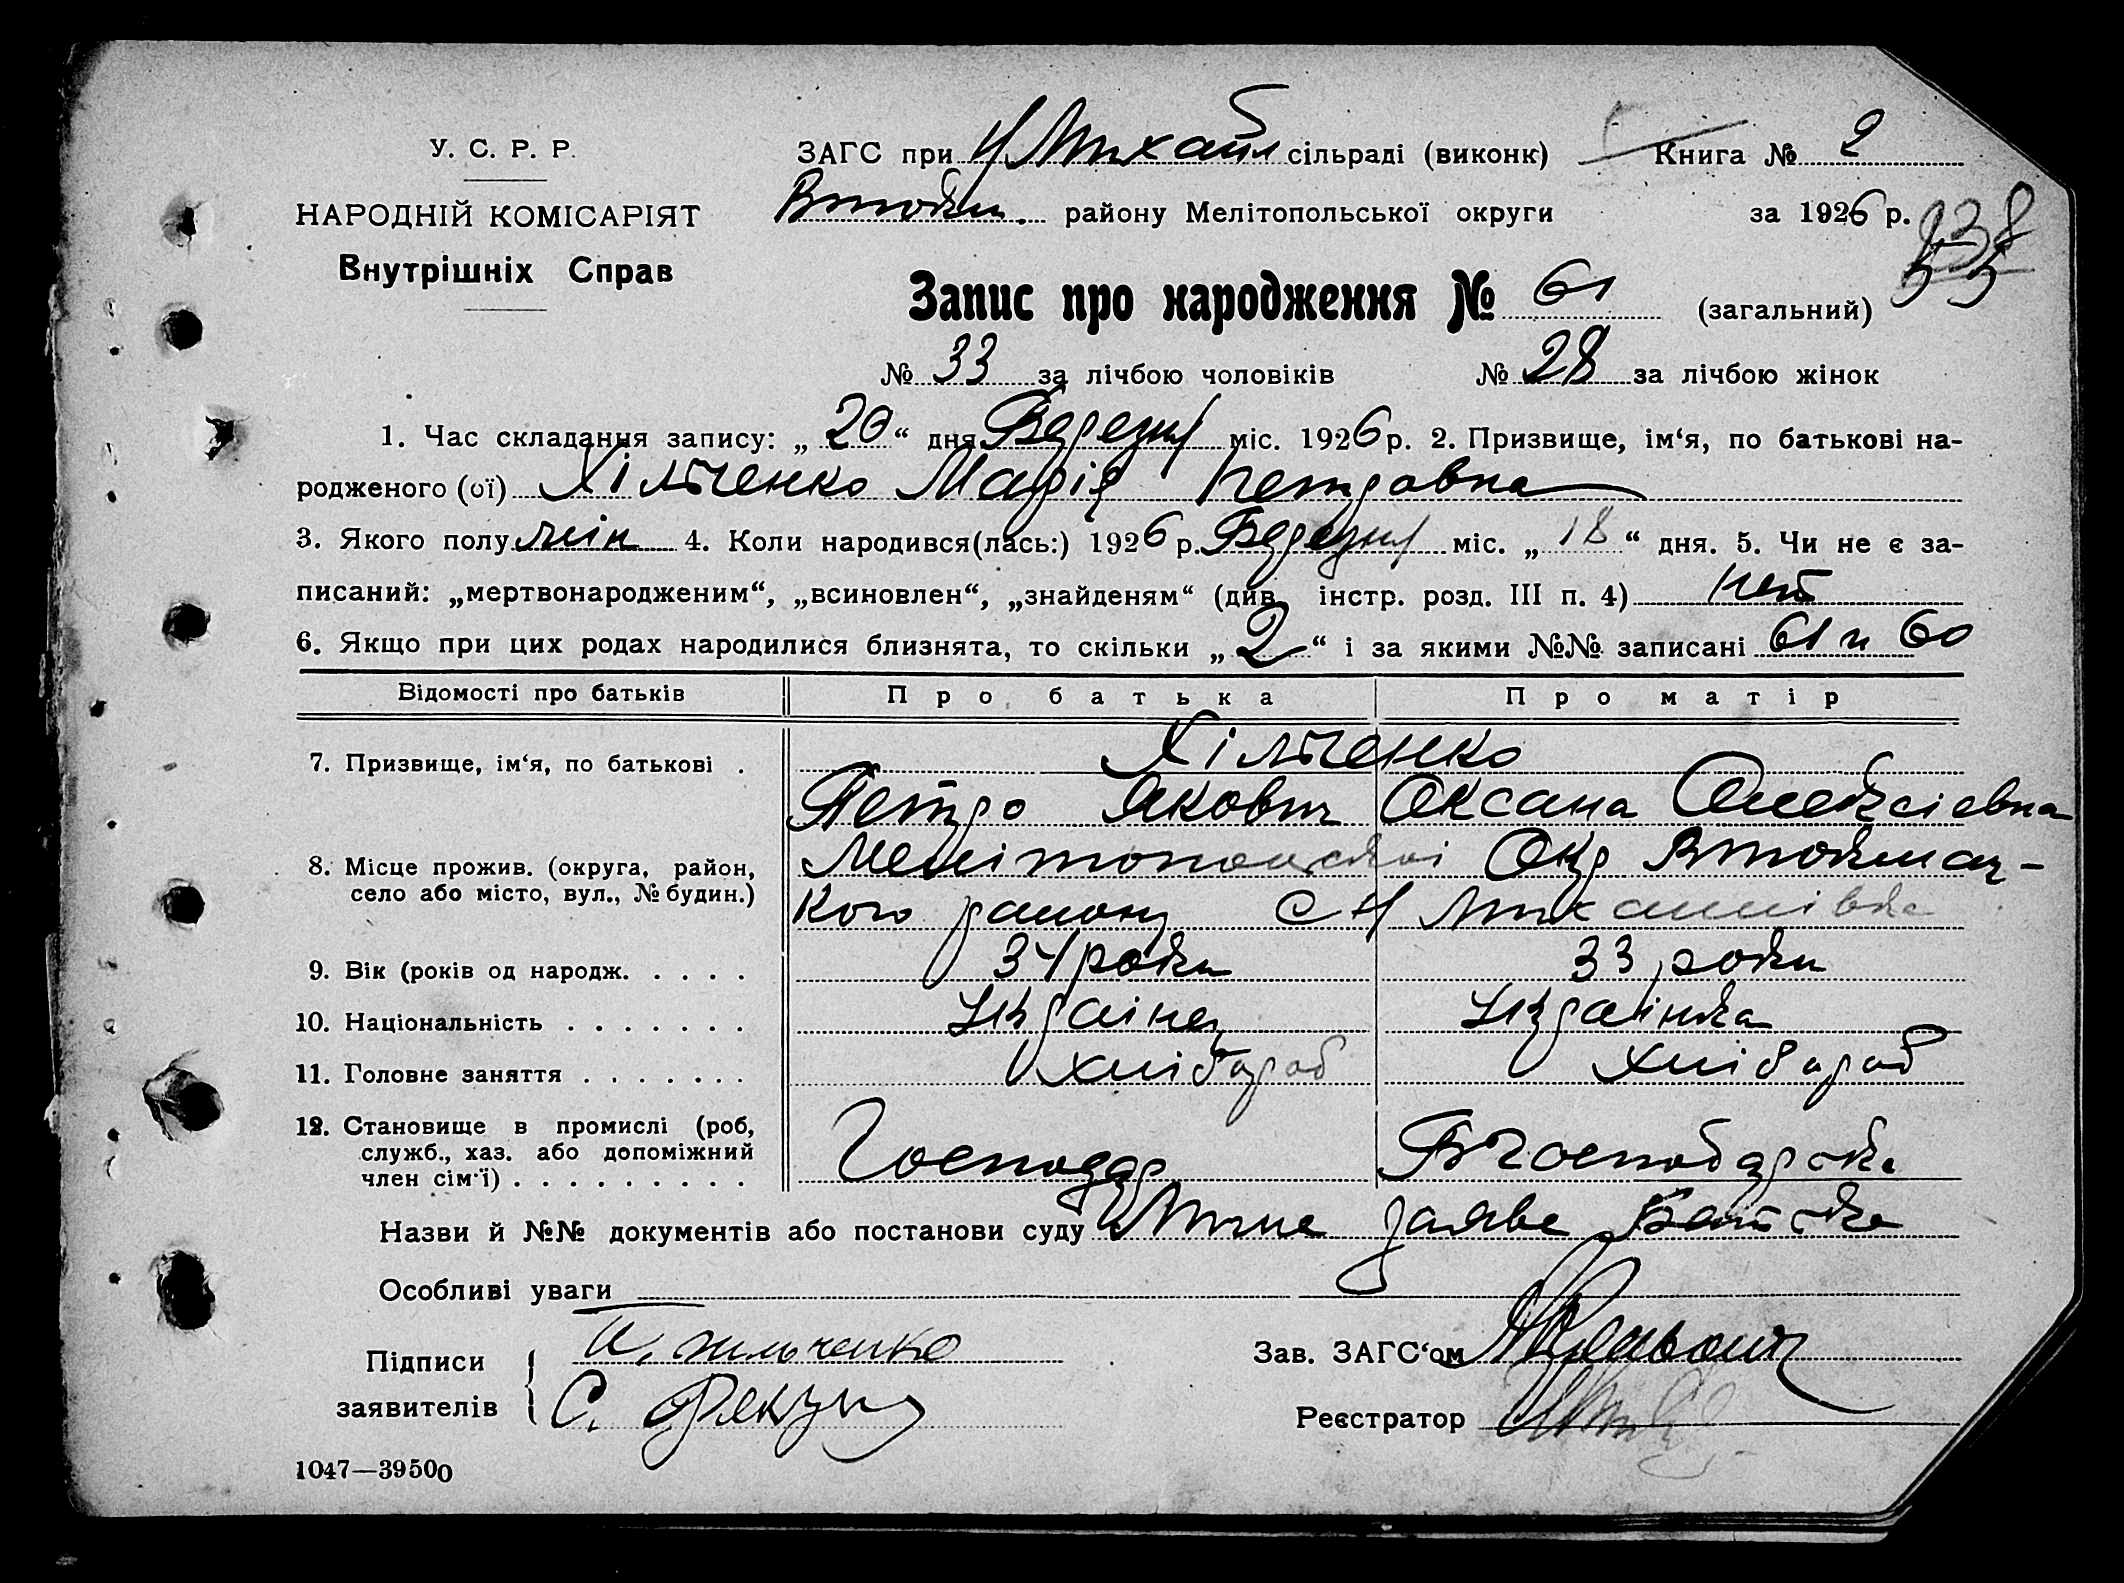 У. С. Р. Р.
НАРОДНІЙ КОМІСАРІЯТ
Внутрішніх Справ
ЗАГС при Н Михайл сільраді (виконк) Книга № 2
Втокм. району Мелітопольської округи за 1926 р.
Запис про народження № 61 (загальний)
№ 33 за лічбою чоловіків № 28 за лічбою жінок
1. Час складання запису: „20“ дня Березня міс. 1926 р. 2. Призвище, ім‘я, по батькові на-
родженого (ої) Хільченко Марія Петровна
3. Якого полу жін 4. Коли народився(лась:) 1926 р. Березня міс. „18“ дня. 5. Чи не є за-
писаний: „мертвонародженим“, „всиновлен“, „знайденям“ (див. інстр. розд. III п. 4) нет
6. Якщо при цих родах народилися близнята, то скільки „2“ і за якими №№ записані 61 и 60
Відомості про батьків Про батька Про матір
7. Призвище, ім‘я, по батькові . Хільченко
Петро Якович Оксана Олексієвна
8. Місце прожив. (округа, район, село або місто, вул., № будин.) Мелітопольської Окр Втокмац-
кого району С Н Михайлівка
9. Вік (років од народж. . . . . 34 роки 33 роки
10. Національність . . . . . . . Українец Українка
11. Головне заняття . . . . . . . Хлібороб Хлібороб
12. Становище в промислі (роб, служб., хаз. або допоміжний член сім‘ї) . . . . . . . . . Господар
Назви й №№ документів або постанови суду заява Батька
Особливі уваги
Підписи заявителів П. Хильченко
С.
Зав. ЗАГС‘ом
Реєстратор
1047—39500